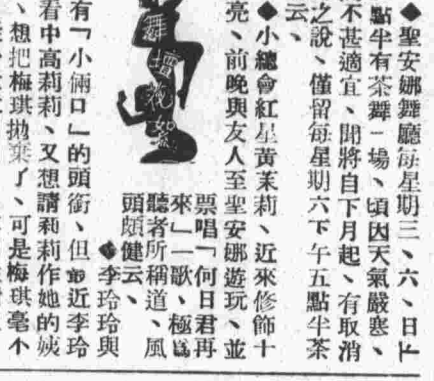 ◆聖安娜舞廳每星期三、六、日下
點半有茶舞一場、頃因天氣嚴寒、
不甚適宜、聞將自下月起、有取消
之說、僅留每星期六下午五點半茶
云、
◆小總會紅星黃茉莉、近來修飾十
亮、前晚與友人至聖安娜遊玩、並
票唱「何日君再
來」一歌、極爲
聽者所稱道、風
頭頗健云、
舞壇花絮
◆李玲玲與
有「小倆口」的頭銜、但最近李玲
看中高莉莉、又想請莉莉作她的姨
、想把梅琪拋棄了、可是梅琪毫不